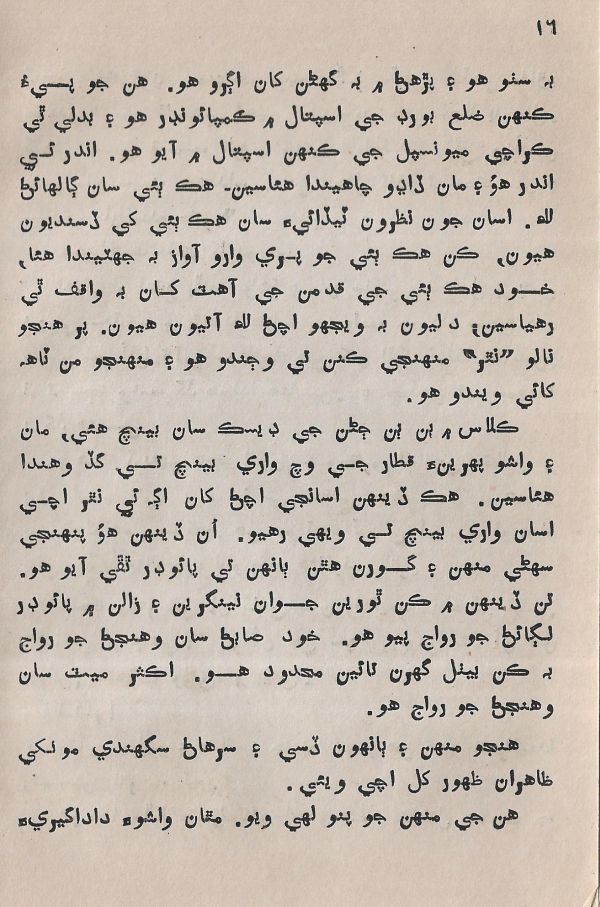 ١٦
بہ سٺو هو ۽ پڙهڻ ۾ بہ گهڻن کان اڳرو هو. هن جو پـــيءُ
ڪنهن ضلع بورڊ جي اسپتال ۾ ڪمپائونڊر هو ۽ بدلي ٿي
ڪراچي ميونسپل جي ڪنهن اسپتال ۾ آيو هو. اندر ئــي
اندر هوُ ۽ مان ڏاڍو چاهيندا هئاسين۔ هڪ ٻئي سان ڳالهائڻ
لاءِ. اسان جون نظرون ٽيڏائيءَ سان هڪ ٻئي کي ڏسنديون
هيون، ڪن هڪ ٻئي جو پــري وارو آواز بہ جهٽيندا هئا،
خــود هڪ ٻئي جي قدمن جي آهٽ کــان بہ واقف ٿي
رهياسين؛ دليون بہ ويجهو اچڻ لاءِ آتيون هيون. پر هنجو
نالو ”نٿر“ منهنجي ڪنن تي وڄندو هو ۽ منهنجو من ٺاهہ
کائي ويندو هو.
ڪلاس ۾ ٻن ٻن ڄڻن جي ڊيسڪ سان بينچ هئي، مان
۽ واشو پهرينءَ قطار جــي وچ واري بينچ تـــي گڏ وهندا
هئاسين. هڪ ڏينهن اسانجي اچڻ کان اڳہ ئي نٿر اچــي
اسان واري بينچ تــي ويهي رهيو. اُن ڏينهن هوُ پنهنجي
سهڻي منهن ۽ گــورن هٿن ٻانهن تي پائوڊر ٿڦي آيو هو.
تن ڏينهن ۾ ڪن ٿورين جــوان نينگرين ۽ زالن ۾ پائوڊر
لڳائڻ جو رواج پيو هو. خود صابڻ سان وهنجڻ جو رواج
بہ ڪن بيٺل گهرن تائين محدود هـــو. اڪثر ميٽ سان
وهنجڻ جو رواج هو.
هنجو منهن ۽ ٻانهون ڏسي ۽ سرهاڻ سگهندي مونکي
ظاهران ظهور کل اچي ويئي.
هن جي منهن جو پنو لهي ويو. مٿان واشوءَ داداگيريءَ